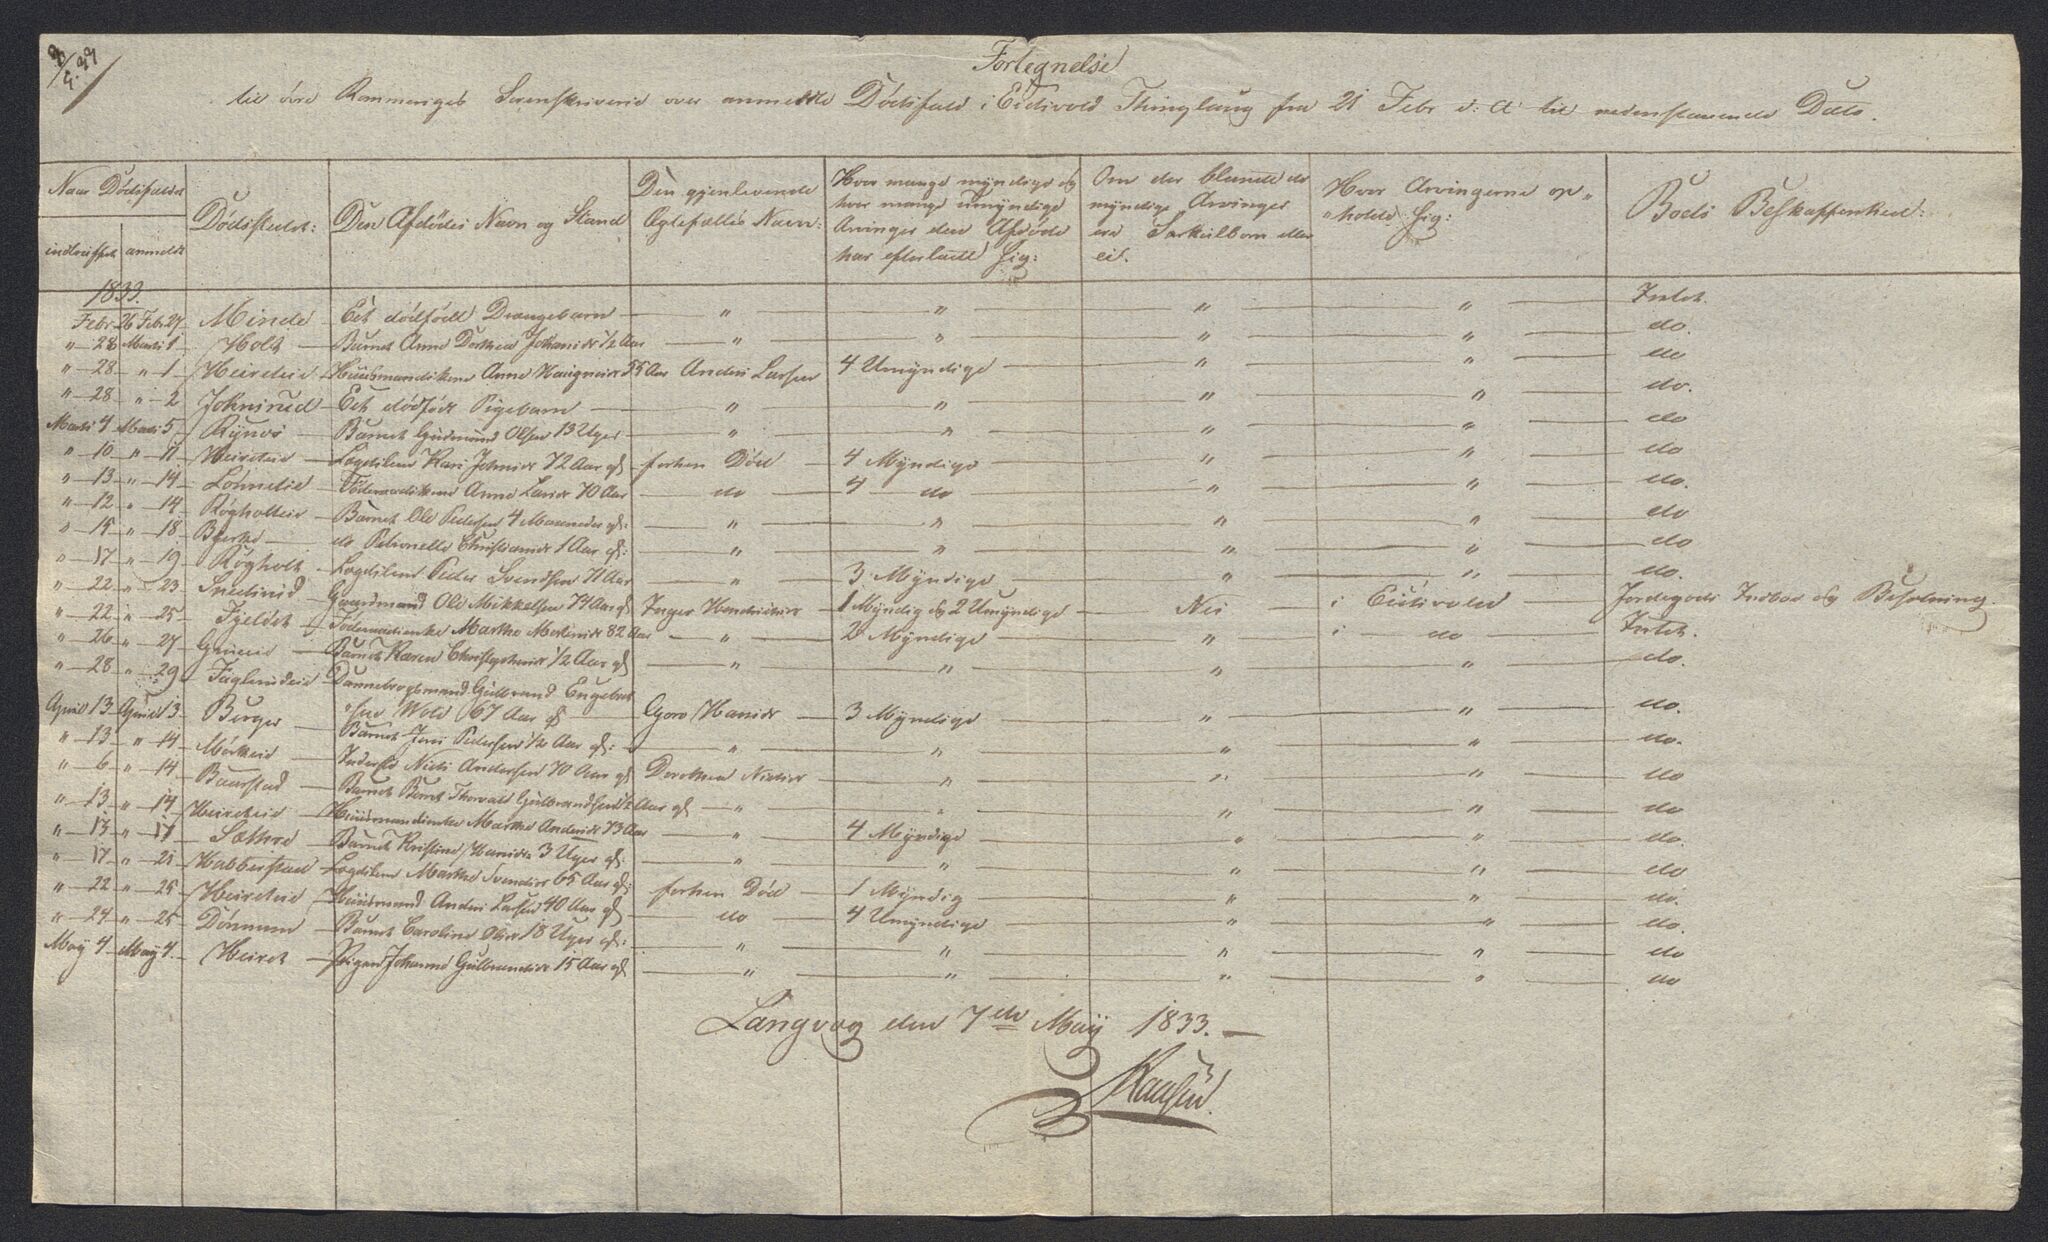 Fortegnelse
til øvre Rommeriges Sorenskriverie over anmeldte Dödsfald i Eidsvold Thinglaug fra 21 Febr d: A: til nedenstaaende Dato.
Naar Dödsfaldet | Dödsstedet: | Den Afdödes Navn og Stand | Den gjenlevende Ægtefælles Navn: | Hvor mange myndige og hvor mange umyndige Arvinger den Afdöde har efterladt Sig: | Om der blandt de myndige Arvinger ere Særkulbørn eller ei. | Hvor Arvingerne opholde Sig: | Boets Beskaffenhed:
indtruffet | anmeldt
1833.
Febr 26 Febr. 27 Minde Eet dödfödt Drengebarn " " " " Intet.
" 28 Marts 1 Holt Barnet Anne Dorthea Johansdr 1/2 Aar " " " " do.
" 28 " 1 Heireteie Huusmandskone Anne 55 Aar Anders Larsen 4 Umyndige " " do
" 28 " 2 Johnsrud Eet dödfödt Pigebarn " " " " do.
Marts 4 Marts 5 Barnet Gudmund Olsen 13 Uger " " " " do
" 10 " 11 Heireteie Lægdslem Kari Johnsdr 72 Aar gl forhen Död 4 Myndige " " do
" 13 " 14 Anne Larsdr 70 Aar do 4 do " " do.
" 12 " 14 Røgholteie Barnet Ole Pedersen 4 Maaneder gl: " " " " do
" 15 " 18 Bjerke do Petronelle Christiansdr 1 Aar gl: " " " " do
" 17 " 19 Røgholt Lægdslem Peder Svendsen 71 Aar " 3 Myndige " " do.
" 22 " 23 Gaardmand Ole Mikkelsen 74 Aar gl Inger Hendrichsdr 1 Myndig og 2 Umyndige Nei i Eidsvold Jordegods Indboe og Besætning.
" 22 " 25 Marthe 82 Aar " 2 Myndige " i do Intet.
" 26 " 27 Barnet Karen Christophersdr 1/2 Aar gl " " " " do.
" 28 " 29 Dannebrogsmand Gulbrand Engebret
sen Wold 67 Aar gl Goro Hansdr 3 Myndige " " do.
April 13 April 13 Berger Barnet Jens Pedersen 1/2 Aar gl: " " " " do.
" 13 " 14 Niels Andersen 70 Aar gl Dorthea Nielsdr " " " do
" 6 " 14 Baarstad Barnet Bernt Thorvald Gulbrandsen 1/2 Aar gl " " " " do
" 13 " 14 Heireteie Huusmandsenke Marthe Andersdr 73 Aar " 4 Myndige " " do.
" 15 " 17 Sæthre Barnet Kristine Hansdr 3 Uger gl: " " " " do
" 17 " 21 Habberstad Lægdslem Marthe Svendsdr 65 Aar gl: forhen Död 1 Myndig " " do.
" 22 " 25 Heireteie Huusmand Anders Larsen 40 Aar gl do 4 Umyndige " " do.
" 24 " 25 Dönnum Barnet Caroline Olsdr 18 Uger gl: " " " " do
Maÿ 4 Maÿ 4. Heiret Pigen Johanne Gulbrandsdr 15 Aar gl " " " " do
Langvag den 7de Maÿ 1833.